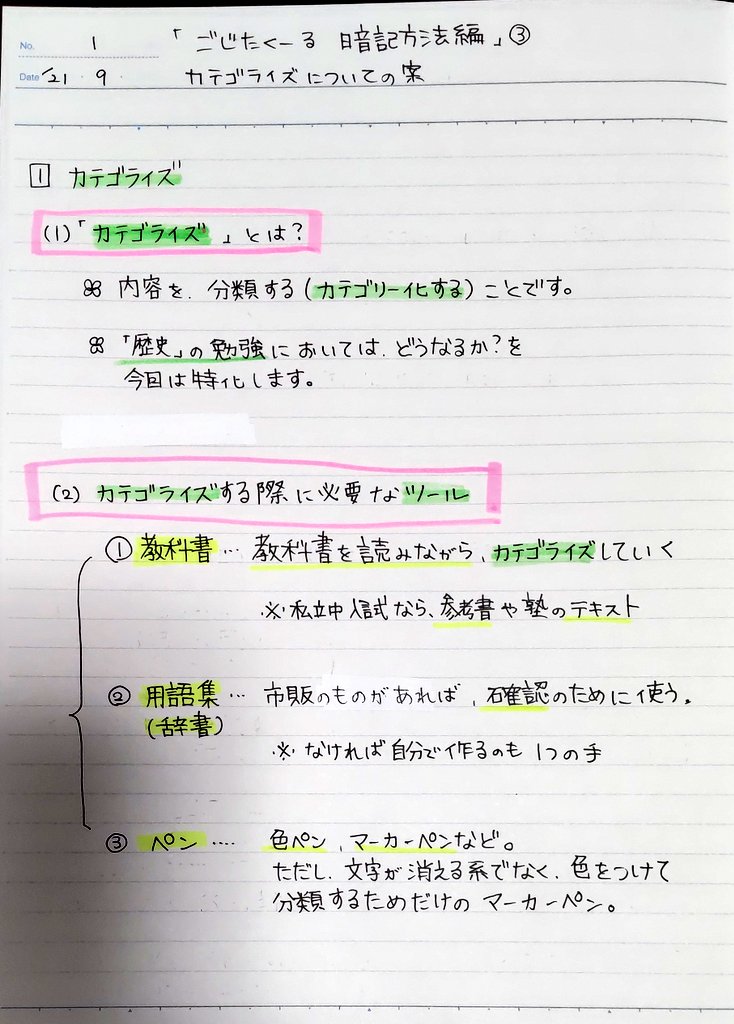 No. 1 「ごじたくーる 暗記方法編」③
Date '21・9・ カテゴライズについての案
1 カテゴライズ
(1)「カテゴライズ」とは?
※ 内容を、分類する(カテゴリー化する)ことです。
※ 「歴史」の勉強においては、どうなるか?を
今日は特化します。
(2) カテゴライズする際に必要なツール
① 教科書… 教科書を読みながら、カテゴライズしていく
※私立中入試なら、参考書や塾のテキスト
② 用語集… 市販のものがあれば、確認のために使う。
(辞書)
※ なければ自分で作るのも1つの手
③ ペン…. 色ペン、マーカーペンなど。
ただし、文字が消える系でなく、色をつけて
分類するためだけの マーカーペン。